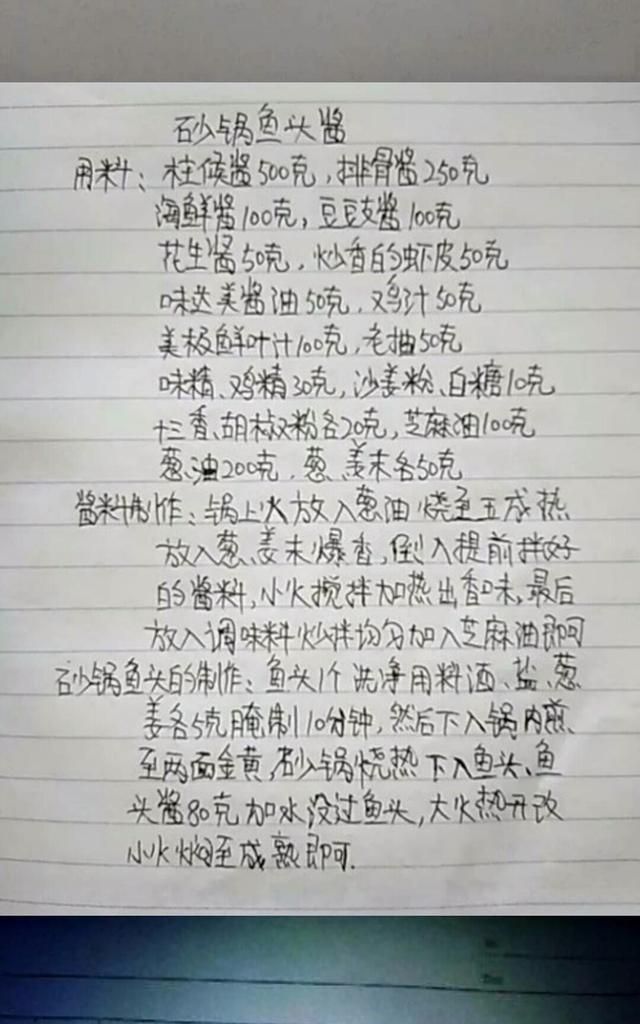 砂锅鱼头酱
用料：柱候酱500克，排骨酱250克
海鲜酱100克，豆豉酱100克
花生酱50克，炒香的虾皮50克
味达美酱油50克，鸡汁50克
美极鲜叶汁100克，老抽50克
味精、鸡精30克，沙姜粉、白糖10克
十三香、胡椒粉各20克，芝麻油100克
葱油200克，葱、姜末各50克
酱料制作：锅上火放入葱油烧至五成热
放入葱、姜末爆香，倒入提前拌好
的酱料，小火搅拌加热出香味，最后
放入调味料炒拌均匀加入芝麻油即可
砂锅鱼头的制作：鱼头1个洗净用料酒、盐、葱
姜各5克腌制10分钟，然后下入锅内煎
至两面金黄，砂锅烧热下入鱼头、鱼
头酱80克加水没过鱼头，大火热开改
小火焖至成熟即可.